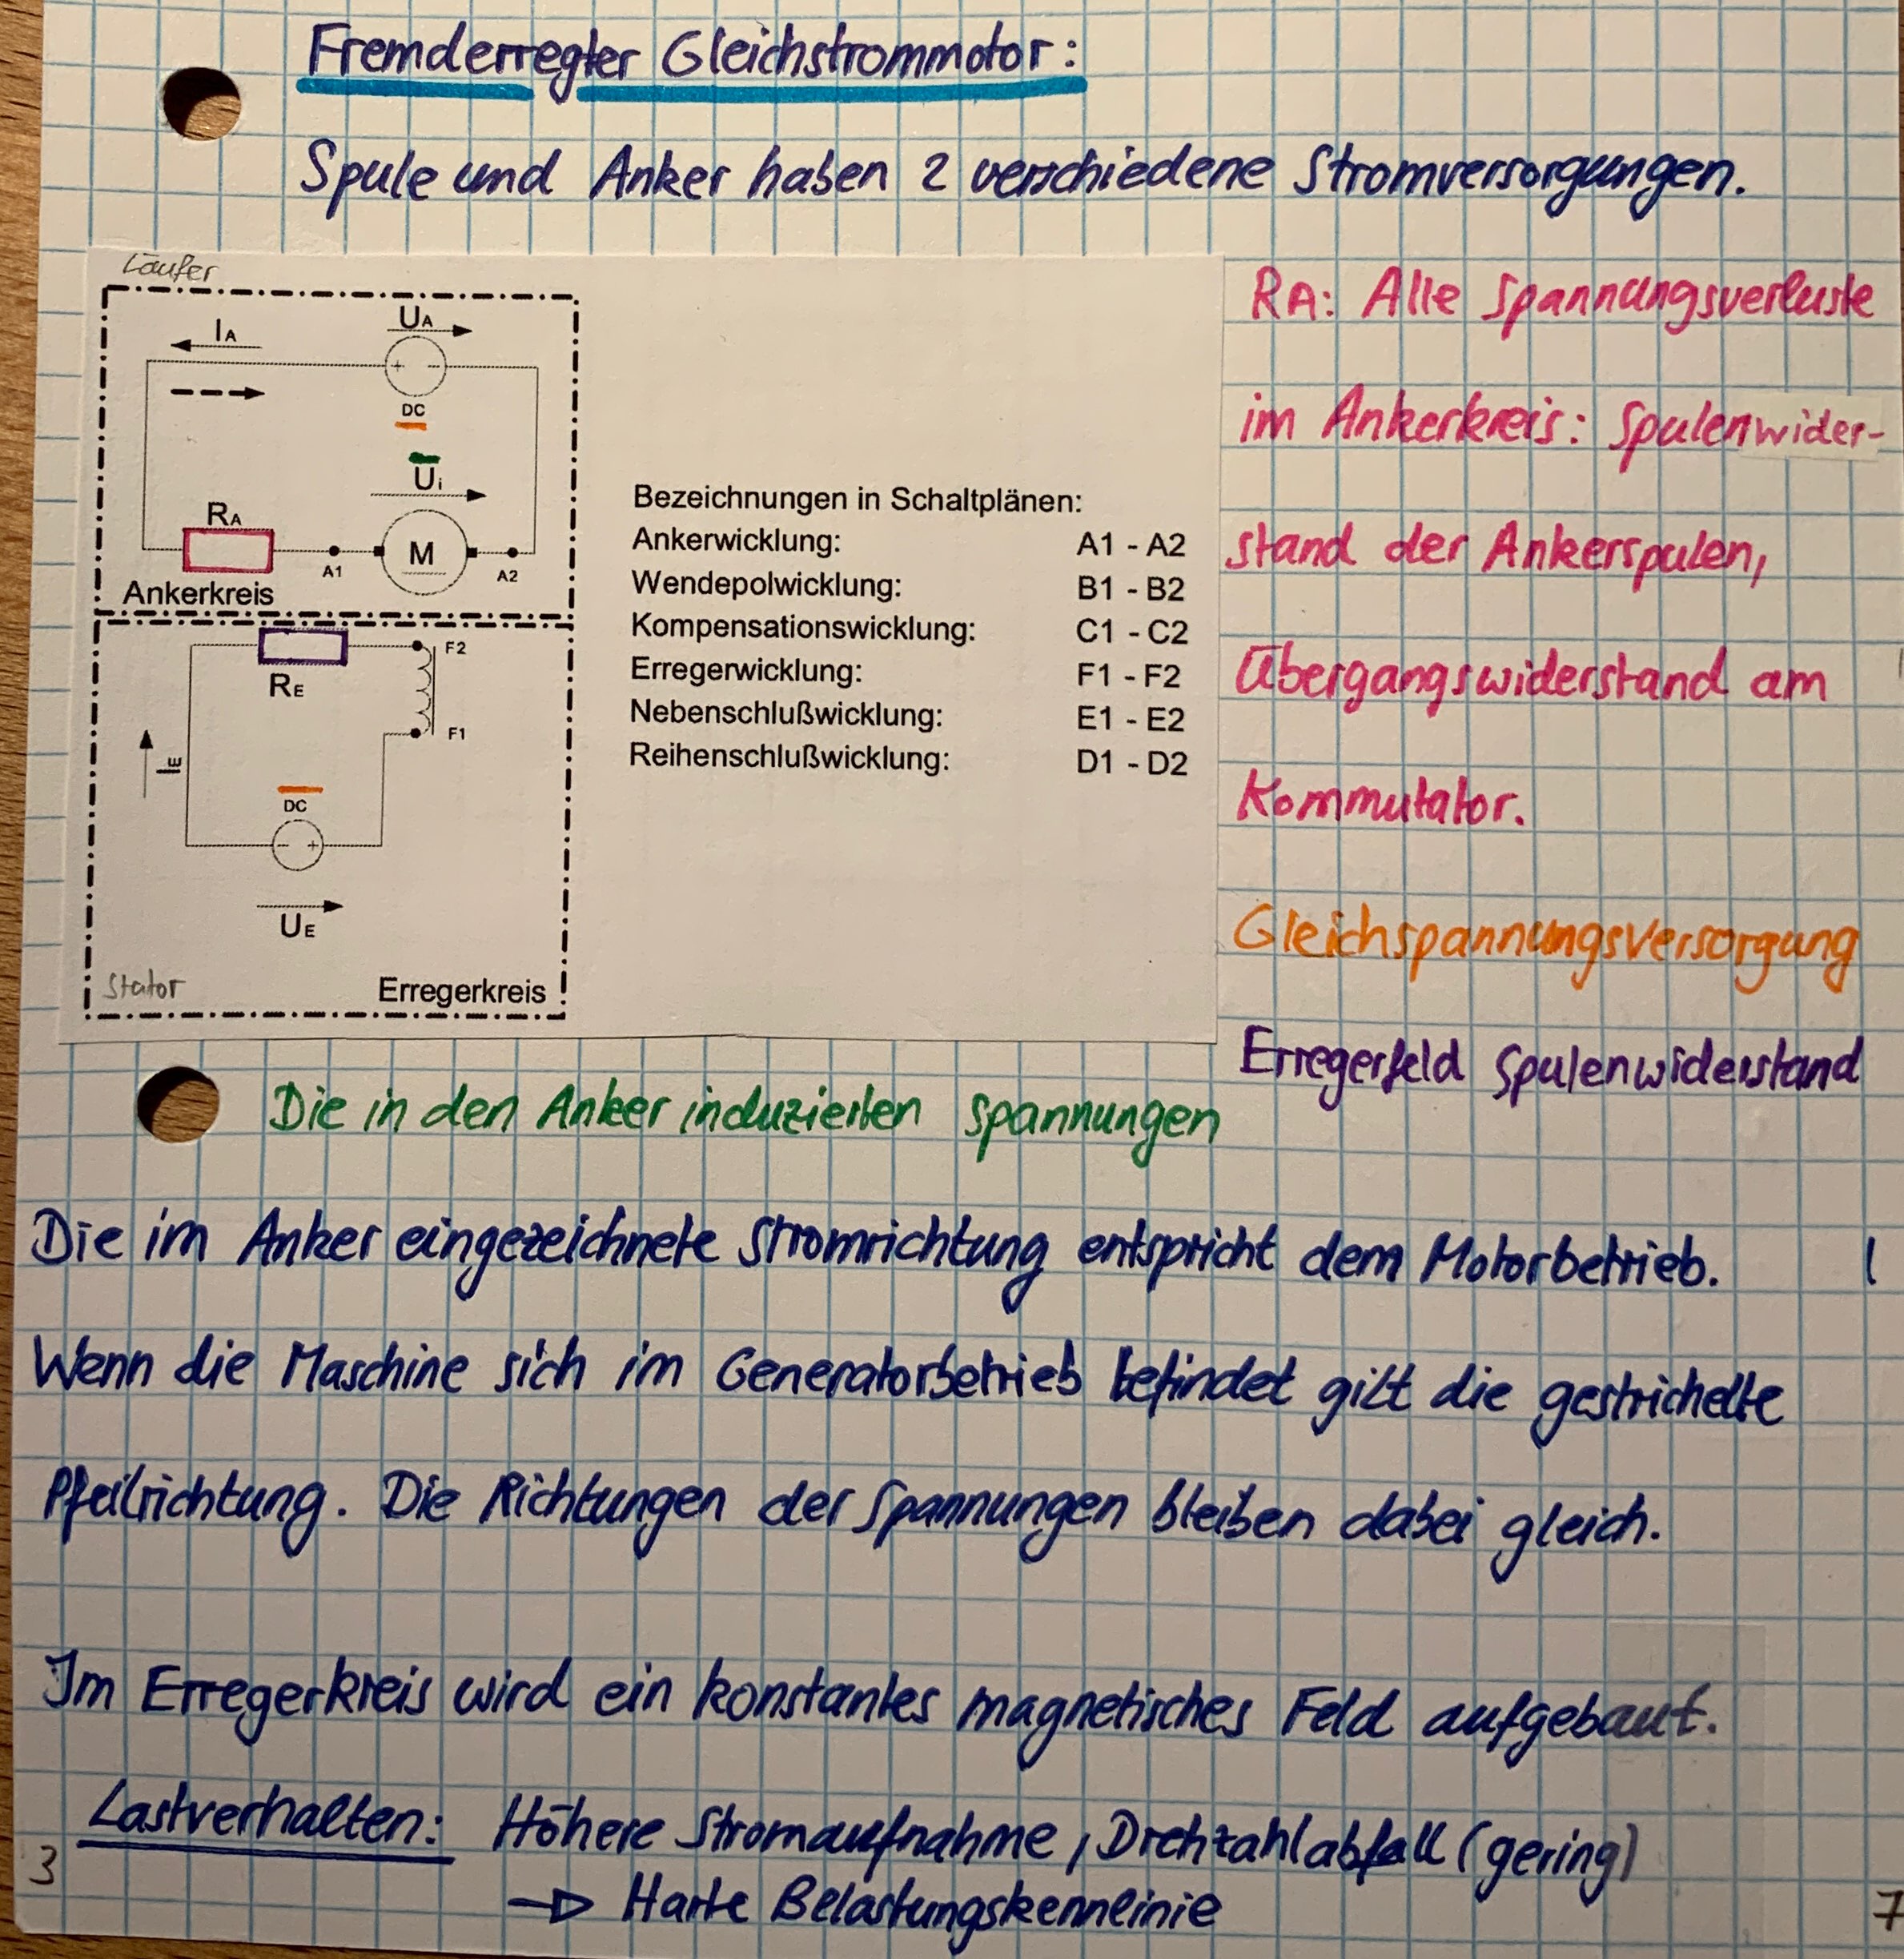 Fremderregter Gleichstrommotor:
Spule und Anker haben 2 verschiedene Stromversorgungen.
Läufer
IA
UA
+ -
DC
Ui
RA
A1
M
A2
Ankerkreis
RE
F2
F1
IE
DC
- +
UE
Stator
Erregerkreis
Bezeichnungen in Schaltplänen:
Ankerwicklung: A1 - A2
Wendepolwicklung: B1 - B2
Kompensationswicklung: C1 - C2
Erregerwicklung: F1 - F2
Nebenschlußwicklung: E1 - E2
Reihenschlußwicklung: D1 - D2
RA: Alle Spannungsverluste
im Ankerkreis: Spulenwider-
stand der Ankerspulen,
Übergangswiderstand am
Kommutator.
Gleichspannungsversorgung
Erregerfeld Spulenwiderstand
Die in den Anker induzierten Spannungen
Die im Anker eingezeichnete Stromrichtung entspricht dem Motorbetrieb.
Wenn die Maschine sich im Generatorbetrieb befindet gilt die gestrichelte
Pfeilrichtung. Die Richtungen der Spannungen bleiben dabei gleich.
Im Erregerkreis wird ein konstantes magnetisches Feld aufgebaut.
Lastverhalten: Höhere Stromaufnahme, Drehzahlabfall (gering)
→ Harte Belastungskennlinie
3
7